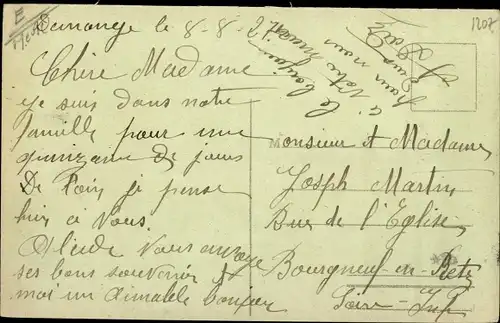 E
1207
le 8-8-27
Chère Madame
je suis dans notre
famille pour une
quinzaine de jours
De Loin je pense
bien à Vous.
Vous envoye
ses bons souvenirs
moi un aimable bonjour
le bonjour
à votre mari
pour nous
Monsieur et Madame
Joseph Martin
Rue de l'Eglise
Bourgneuf-en-Retz
Loire-Inf